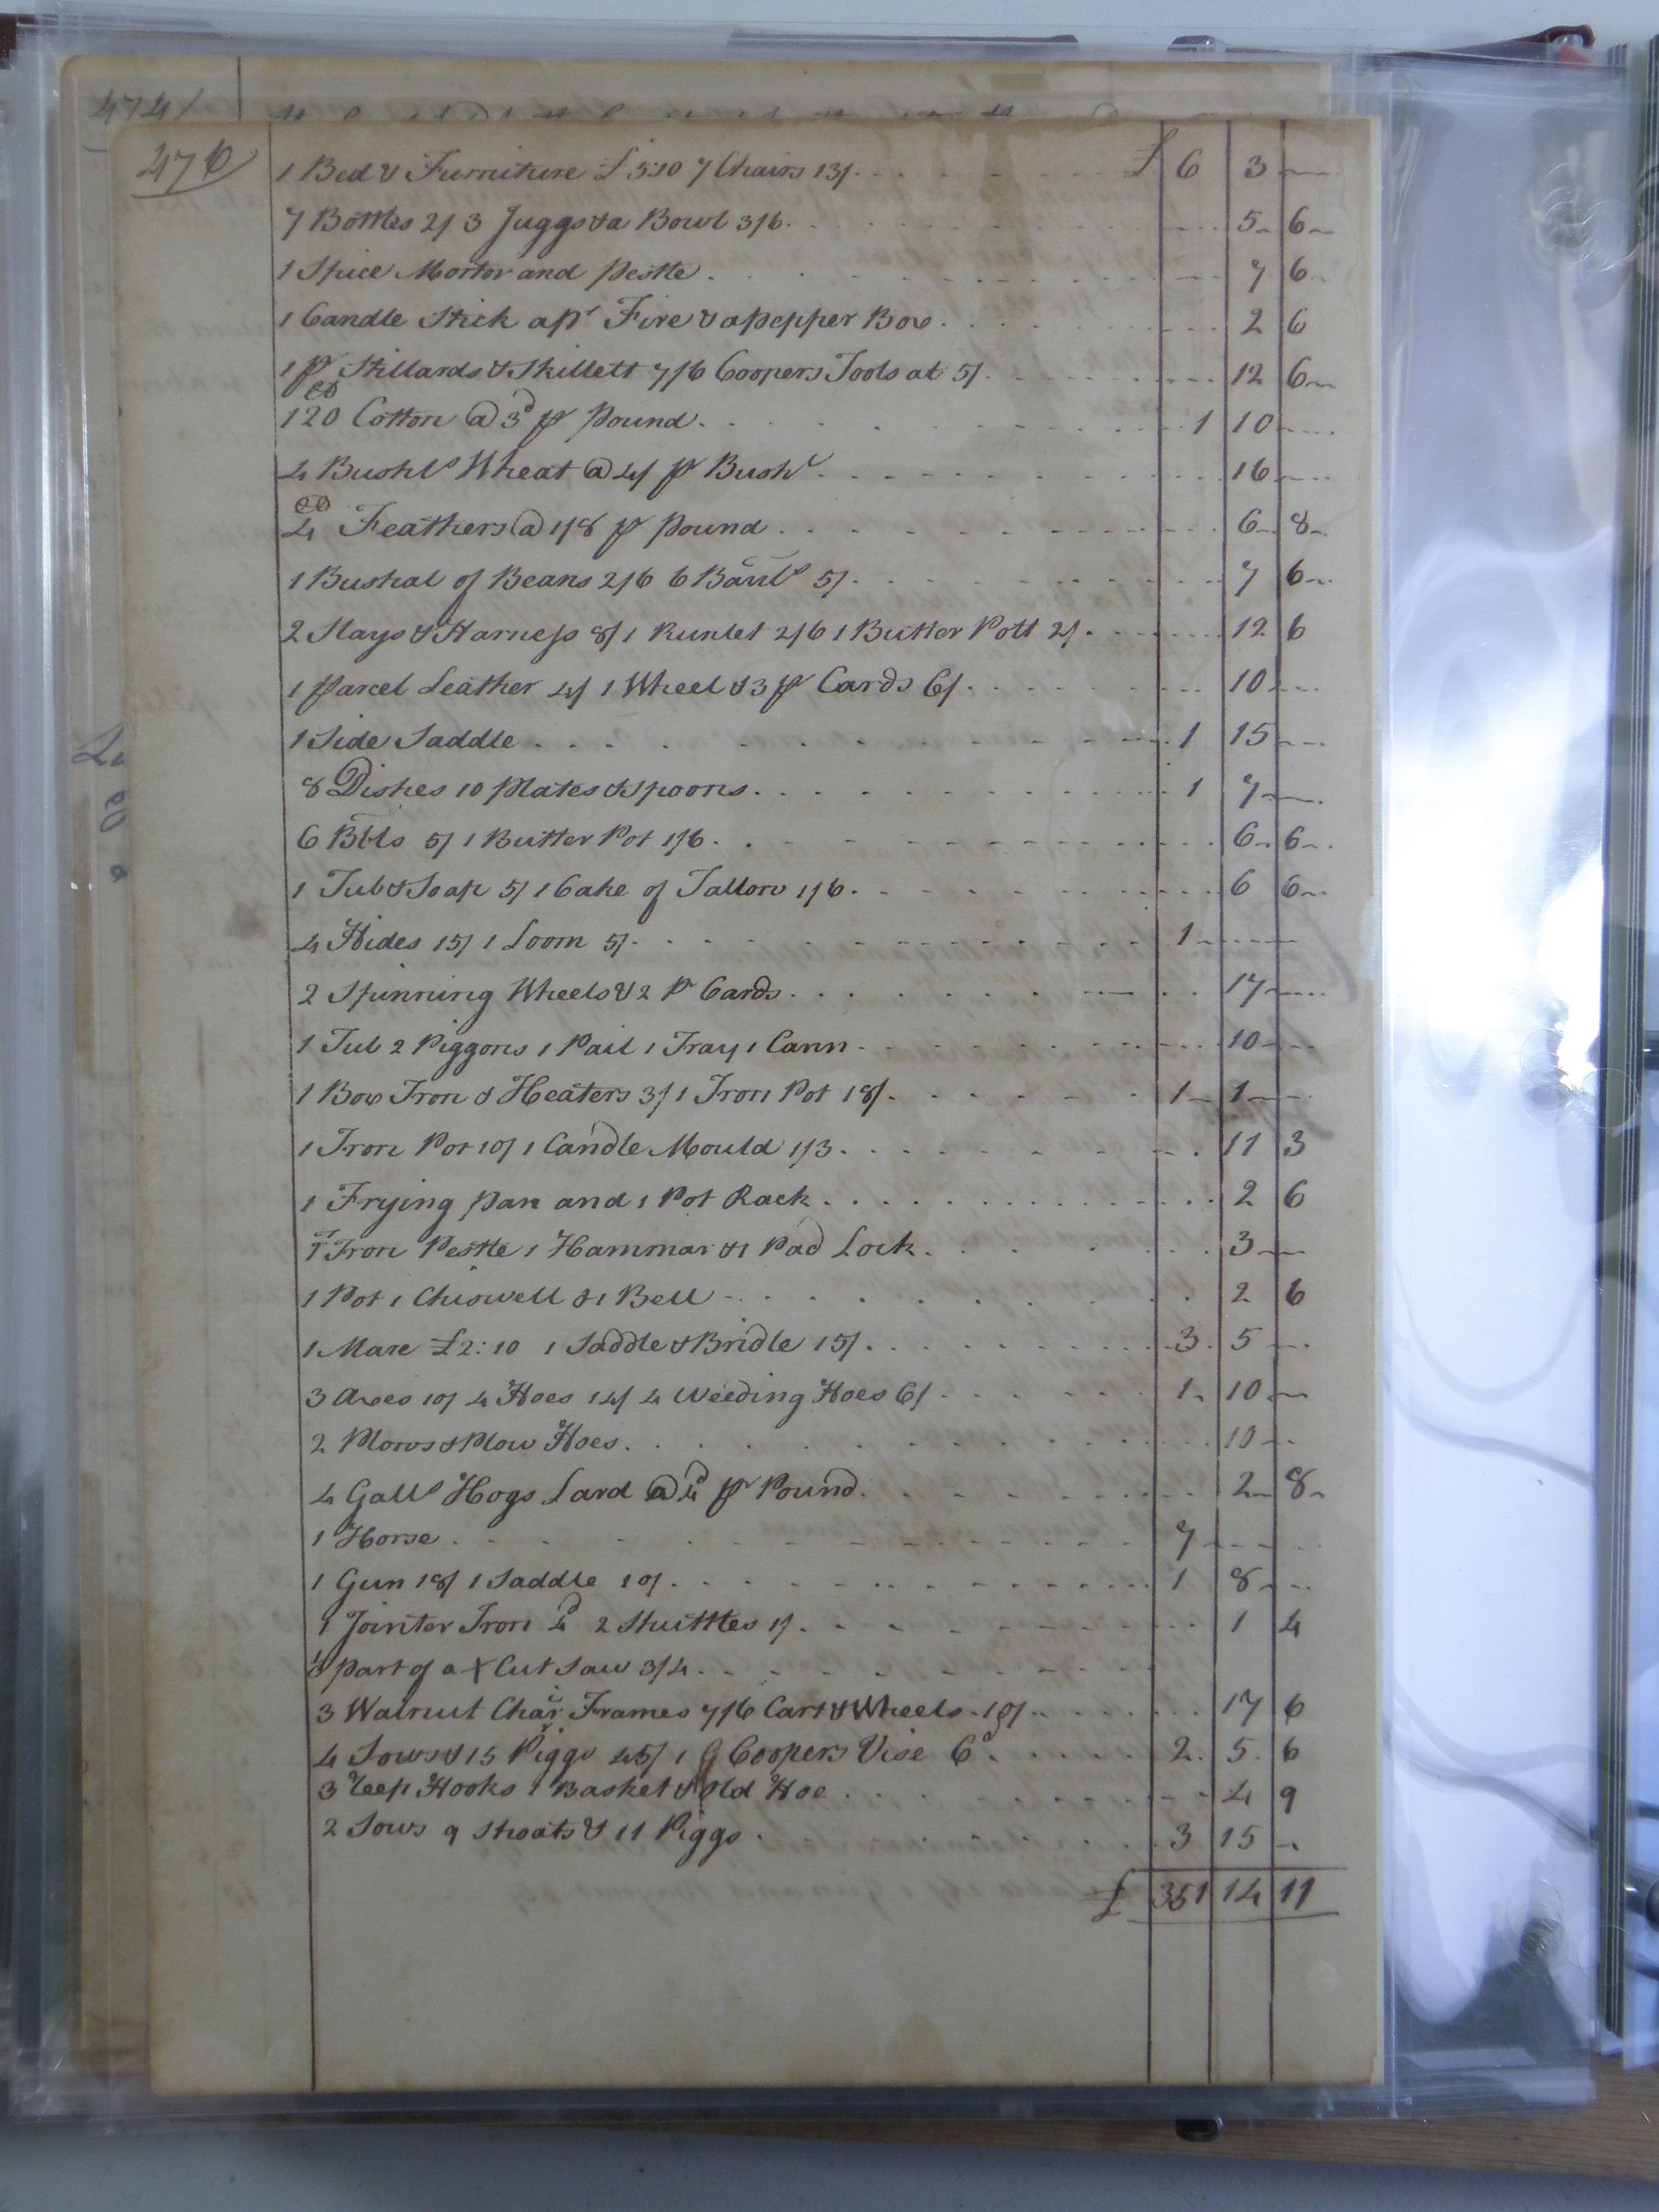 474/
476
1 Bed & Furniture £5:10 7 Chairs 13/. £ 6 3 —
7 Bottles 2/ 3 Juggs & a Bowl 3/6. 5 6
1 Spice Mortor and Pestle. 7 6
1 Candle Stick a pr Fire & a Pepper Box. 2 6
1 pr Stillards & Skillett 7/6 Coopers Tools at 5/. 12 6
120 Cotton @ 3d pr Pound. 1 10 —
4 Bushls Wheat @ 4/ pr Bushl. 16 —
4 Feathers @ 1/8 pr Pound. 6 8
1 Bushal of Beans 2/6 6 Barrls 5/. 7 6
2 Slays & Harness 8/ 1 Runlet 2/6 1 Butter Pott 2/. 12 6
1 Parcel Leather 4/ 1 Wheel & 3 pr Cards 6/. 10 —
1 Side Saddle. 1 15 —
8 Dishes 10 Plates & Spoons. 1 7 —
6 Bbls 5/ 1 Butter Pot 1/6. 6 6
1 Tub & Soap 5/ 1 Cake of Tallow 1/6. 6 6
4 Hides 15/ 1 Loom 5/. 1 — —
2 Spinning Wheels & 2 Pr Cards. 17 —
1 Tub 2 Piggons 1 Pail 1 Tray 1 Cann. 10 —
1 Box Iron & Heaters 3/ 1 Iron Pot 18/. 1 1 —
1 Iron Pot 10/ 1 Candle Mould 1/3. 11 3
1 Frying Pan and 1 Pot Rack. 2 6
1 Iron Pestle 1 Hammar & 1 Pad Lock. 3 —
1 Pot 1 Chiswell & 1 Bell. 2 6
1 Mare £2:10 1 Saddle & Bridle 15/. 3 5 —
3 Axes 10/ 4 Hoes 14/ 4 Weeding Hoes 6/. 1 10 —
2 Plows & Plow Hoes. 10 —
4 Galls Hogs Lard @ 4d pr Pound. 2 8
1 Horse. 7 — —
1 Gun 18/ 1 Saddle 10/. 1 8 —
1 Jointer Iron 4d 2 Shuttles 1/. 1 4
1/3 Part of a X Cut Saw 3/4.
3 Walnut Chair Frames 7/6 Cart & Wheels 10/. 17 6
4 Sows & 15 Piggs 45/ 1 Coopers Vise 6d. 2 5 6
3 Reep Hooks 1 Basket & Old Hoe. 4 9
2 Sows 9 Shoats & 11 Piggs. 3 15 —
£ 351 14 11